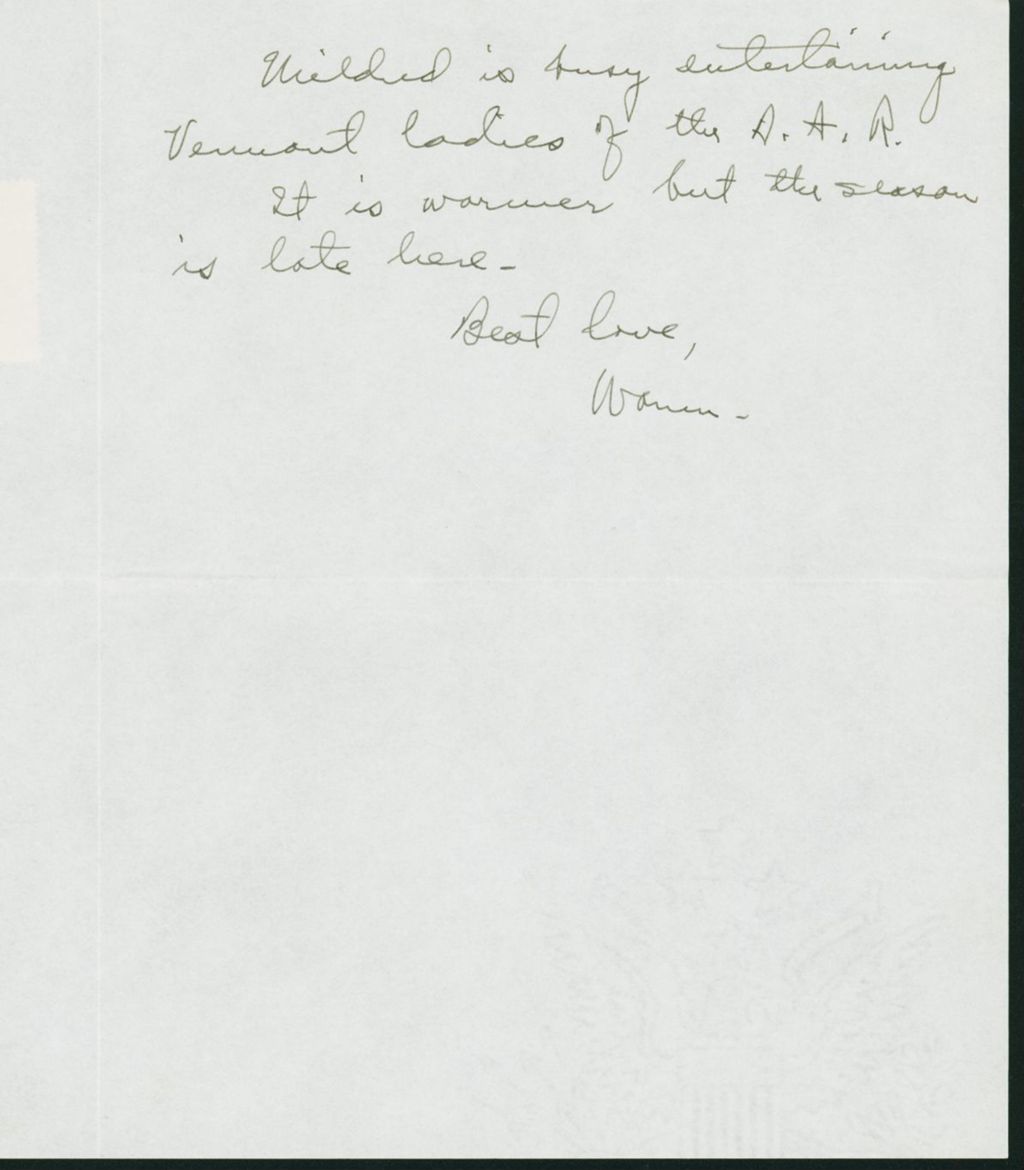 Mildred is busy entertaining
Vermont ladies of the D. A. R.
It is warmer but the season
is late here -
Best love,
Warren -